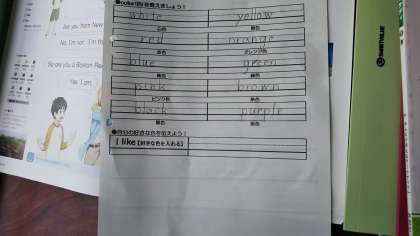 Are you from New
No, I'm not. I'm fr
So are you a Korean
Yes, I am.
white yellow
白色 黄色
red orange
赤色 オレンジ色
blue green
青色 緑色
pink brown
ピンク色 茶色
black purple
黒色 紫色
●自分の好きな色を伝えよう！
I like 【好きな色を入れる】